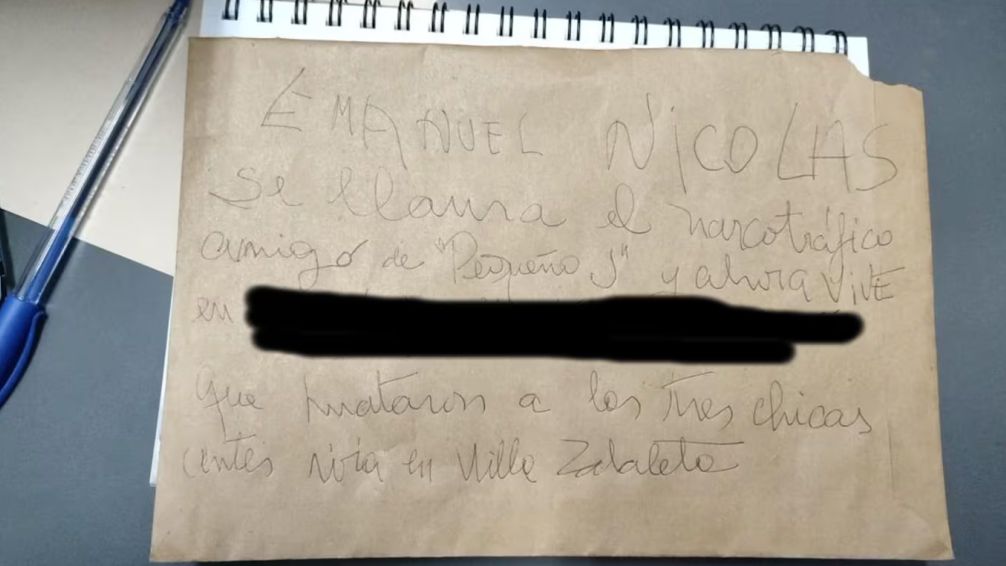 EMANUEL NICOLAS
Se llama el narcotráfico
amigo de "Pequeño J" y ahora VIVE
en
que mataron a las tres chicas
antes vivia en Villa Zabaleta